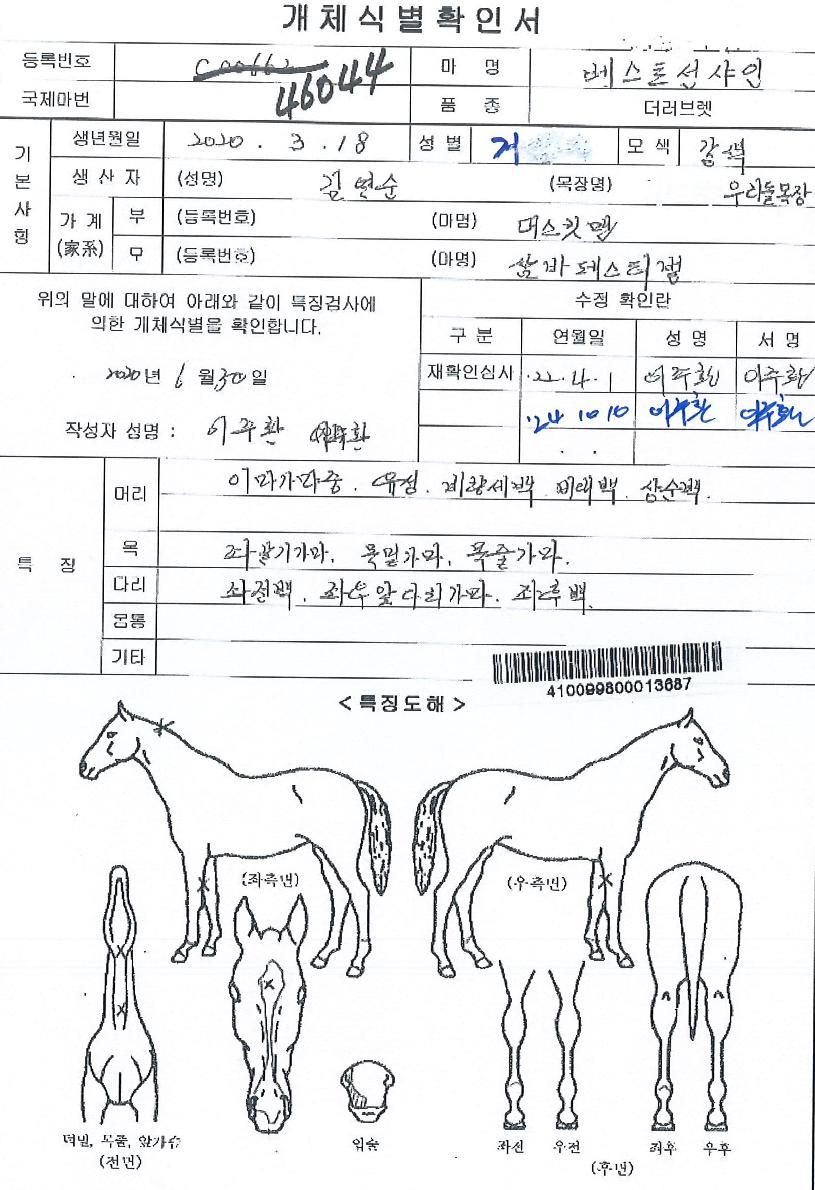 개체식별확인서
등록번호 46044 마 명 베스트선샤인
국제마번 품 종 더러브렛
기본사항
생년월일 2020 . 3 . 18 성 별 거 모 색 갈색
생 산 자 (성명) 김연순 (목장명) 우리들목장
가 계 (家系) 부 (등록번호) (마명) 머스킷맨
모 (등록번호) (마명) 삼바페스티벌
위의 말에 대하여 아래와 같이 특징검사에
의한 개체식별을 확인합니다.
2020년 6 월 30 일
작성자 성명 : 이주환 이주환
수정 확인란
구 분 연월일 성 명 서 명
재확인심사 '22. 4. 1 이주환 이주환
'24 10 10 이주환 이주환
특 징
머리 이마가마중. 유성. 비량세백. 비대백. 상순백.
목 좌갈기가마, 목밑가마, 목줄가마.
다리 좌전백. 좌우앞다리가마. 좌후백.
몸통
기타
410099800013687
< 특징도해 >
(좌측면) (우측면)
턱밑, 목줄, 앞가슴
(전면)
입술
좌전 우전 좌후 우후
(후면)